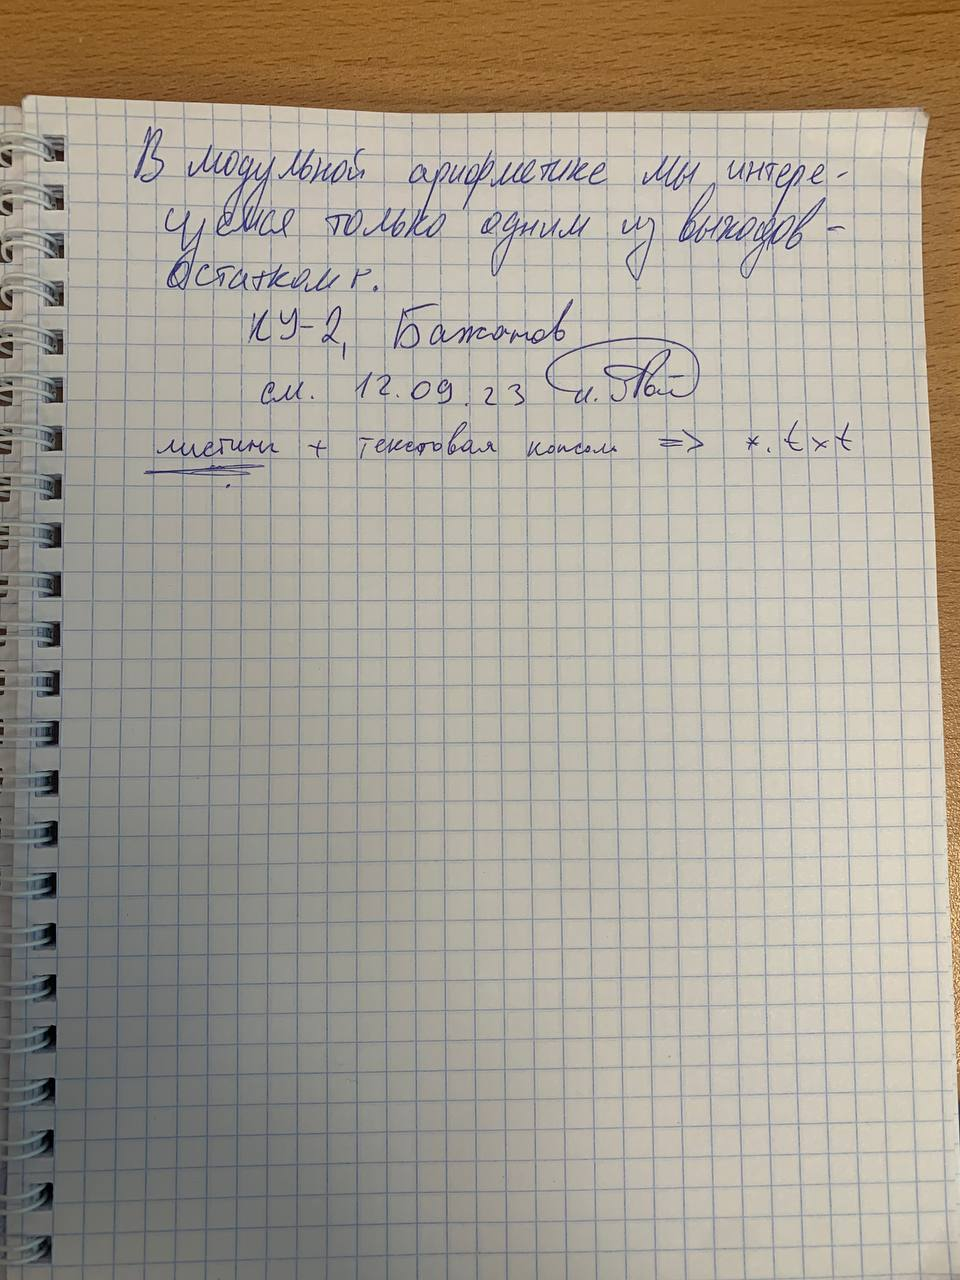 В модульной арифметике мы интере-
суемся только одним из выходов -
остатком r.
КУ-2, Бажанов
см. 12.09.23
листинг + текстовая консоль => *.txt